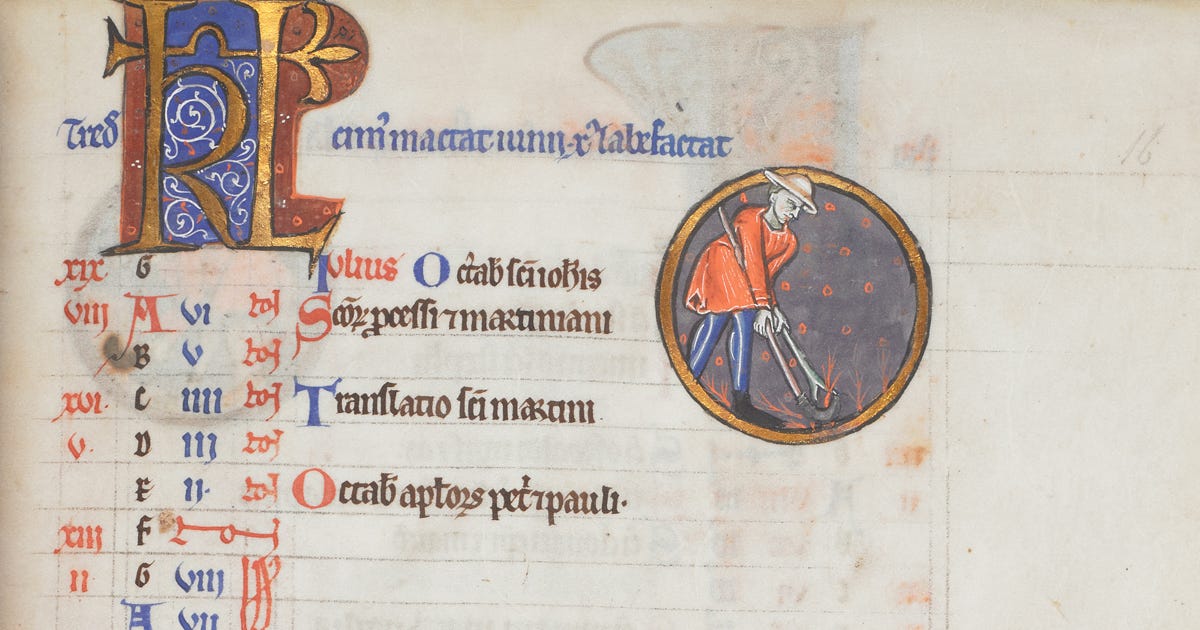 Tred KL cim mactat iulii x labefactat
16
xix G Iulius Octab sci iohis
viii A vi no Scor pcessi ⁊ martiniani
B v no
xvi· c iiii no Translatio sci martini
v· D iii no
E ii· no Octab aptor petr ⁊ pauli·
xiii F no
ii G viii
A vii